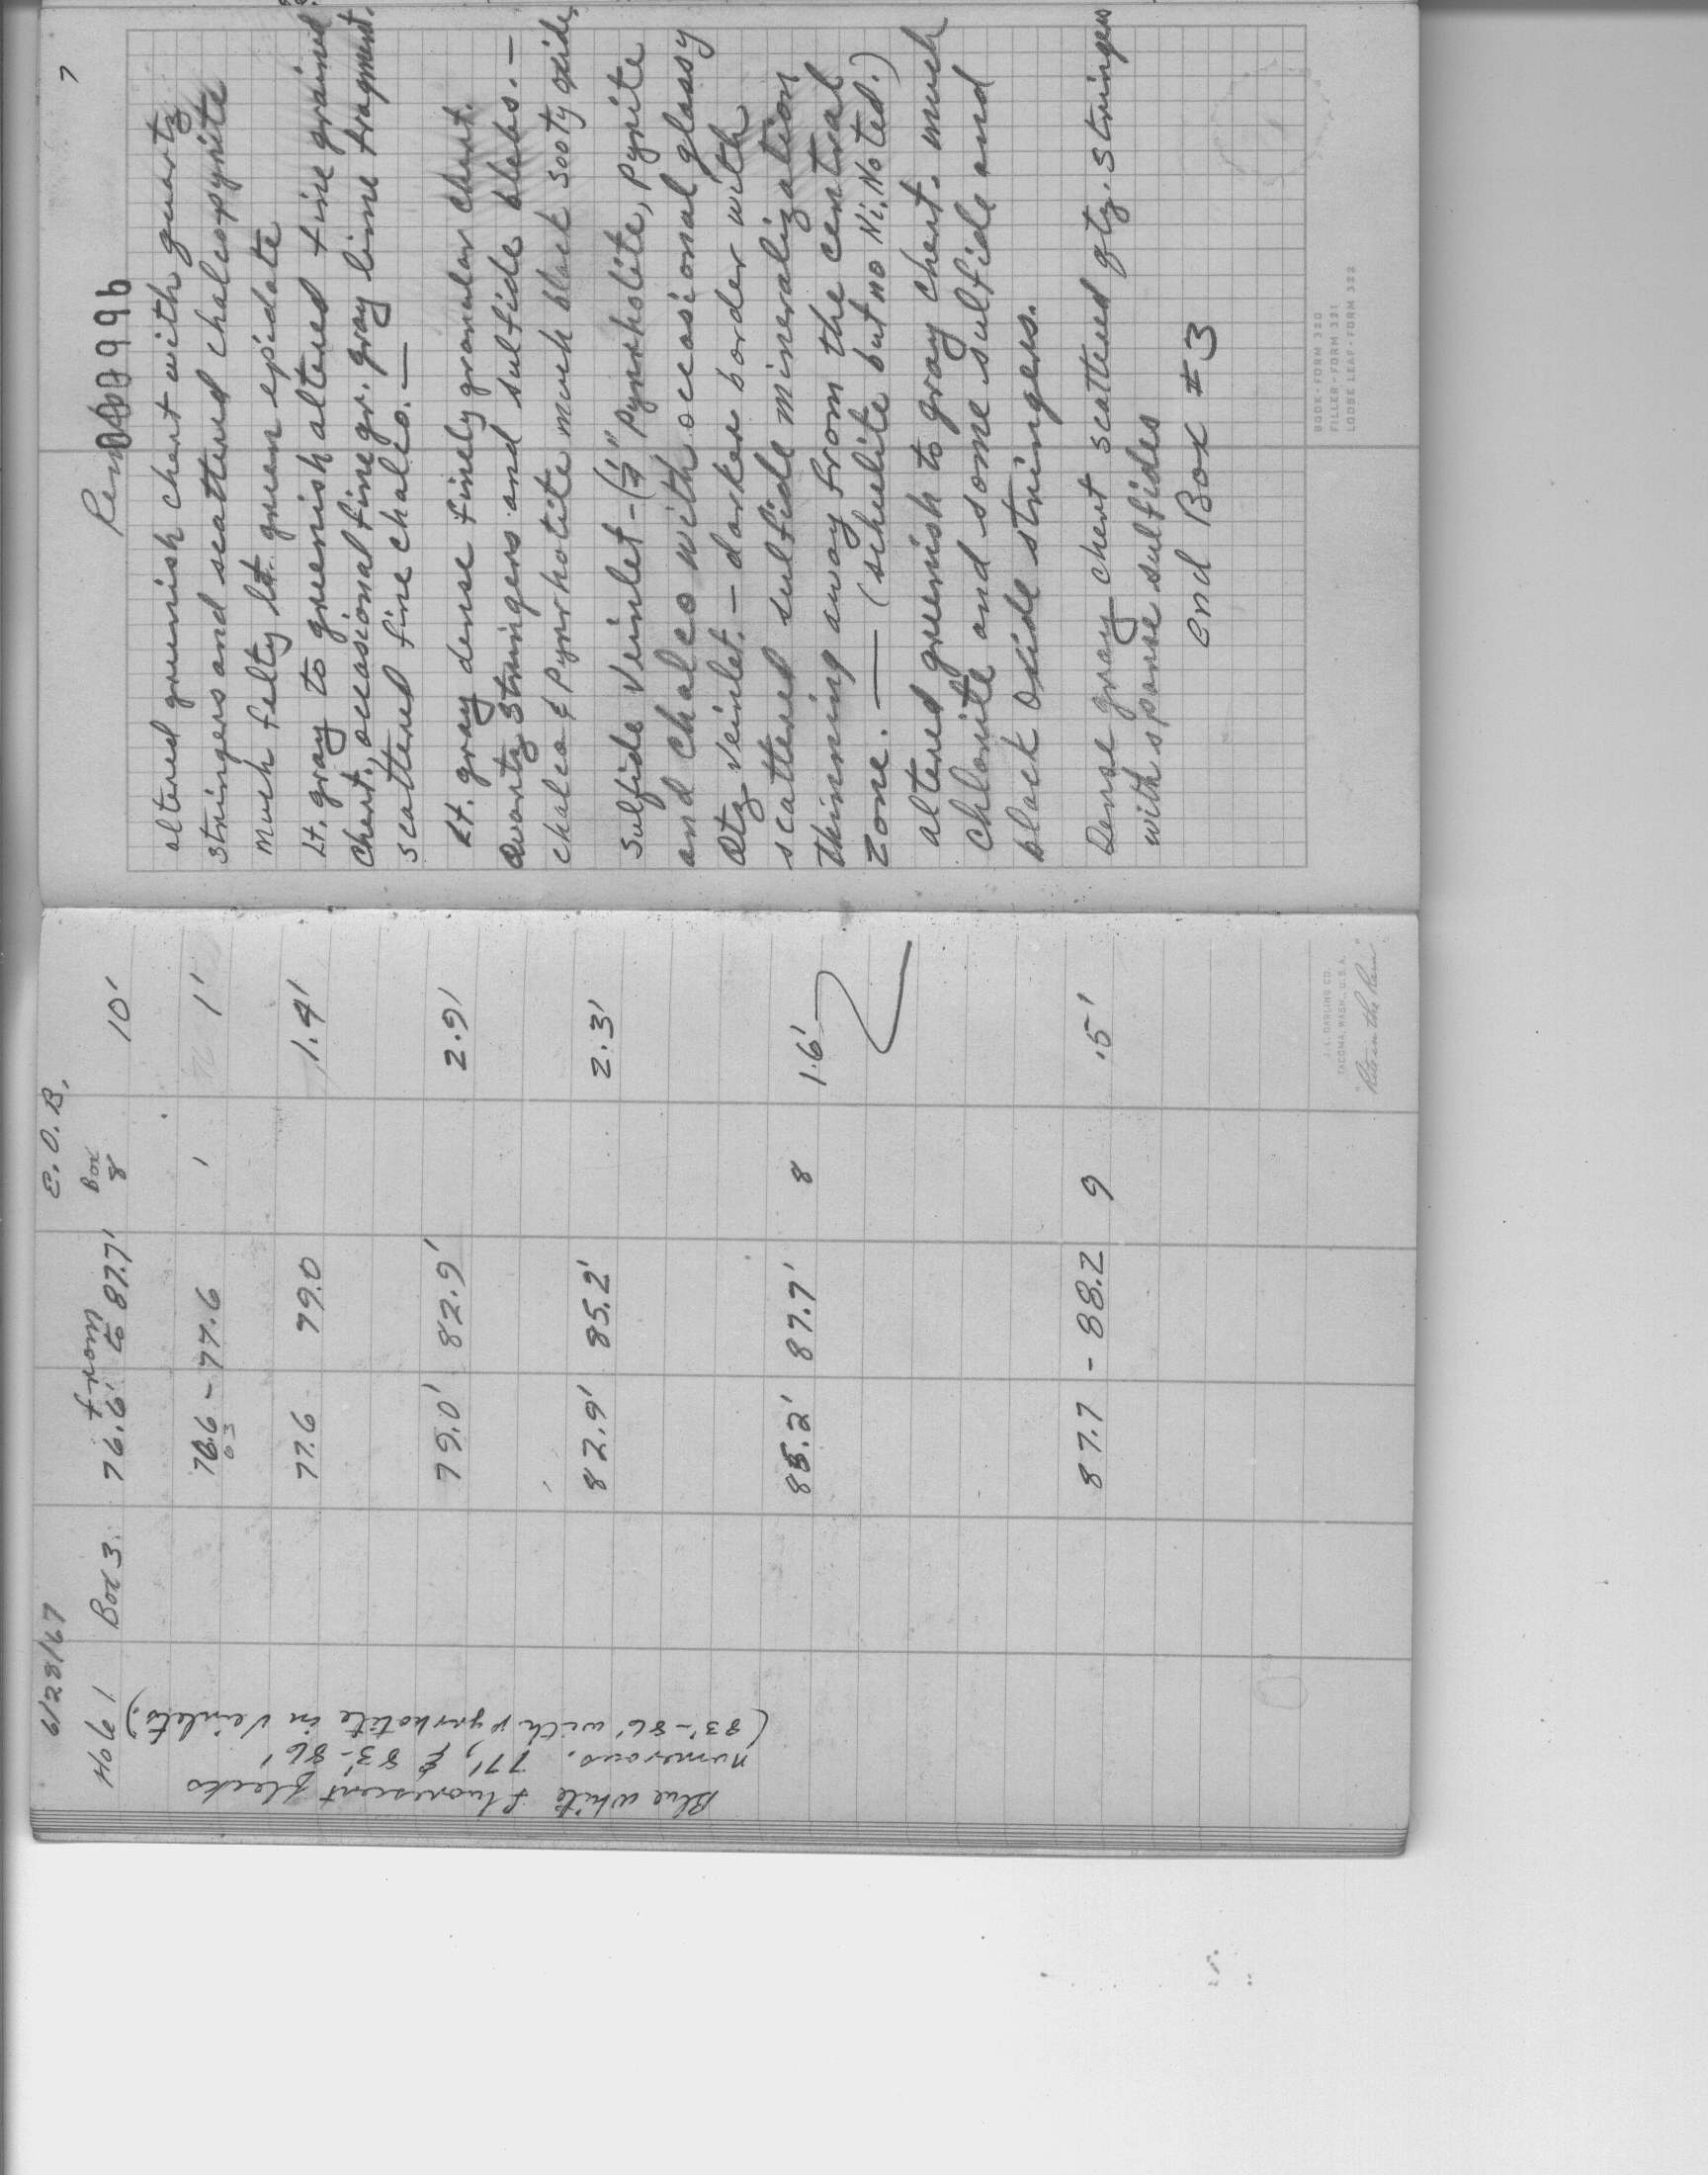 6/28/67
E.O.B.
Hole 1 Box 3. 76.6' from to 87.7' Box 8 10'
76.6 - 77.6 1'
77.6 79.0 1.4'
79.0' 82.9' 2.9'
82.9' 85.2' 2.3'
85.2' 87.7' 8 1.6'
87.7 - 88.2 9 .5'
Blue white fluorescent flecks
numerous. 77', & 83'-86'
(83'-86' with pyrrhotite in veinlets.)
J. L. DARLING CO.
TACOMA, WASH., U.S.A.
"Rite in the Rain"
7
altered greenish chert with quartz
stringers and scattered chalcopyrite
much felty lt. green epidote
Lt. gray to greenish altered fine grained
chert, occasional fine gr. gray lime fragment.
scattered fine chalco. —
Lt. gray dense finely granular chert.
Quartz stringers and sulfide blebs. —
chalco & pyrrhotite much black sooty oxide
Sulfide Veinlet - (1/4" pyrrholite, pyrite
and chalco with occasional glassy
Qtz veinlet. - darker border with
scattered sulfide mineralization
thinning away from the central
zone. — (schelite but no Ni. Noted.)
altered greenish to gray chert. much
chlorite and some sulfide and
black oxide stringers.
Dense gray chert scattered qtz. stringers
with sparse sulfides
end Box #3
BOOK-FORM 320
FILLER-FORM 321
LOOSE LEAF-FORM 322